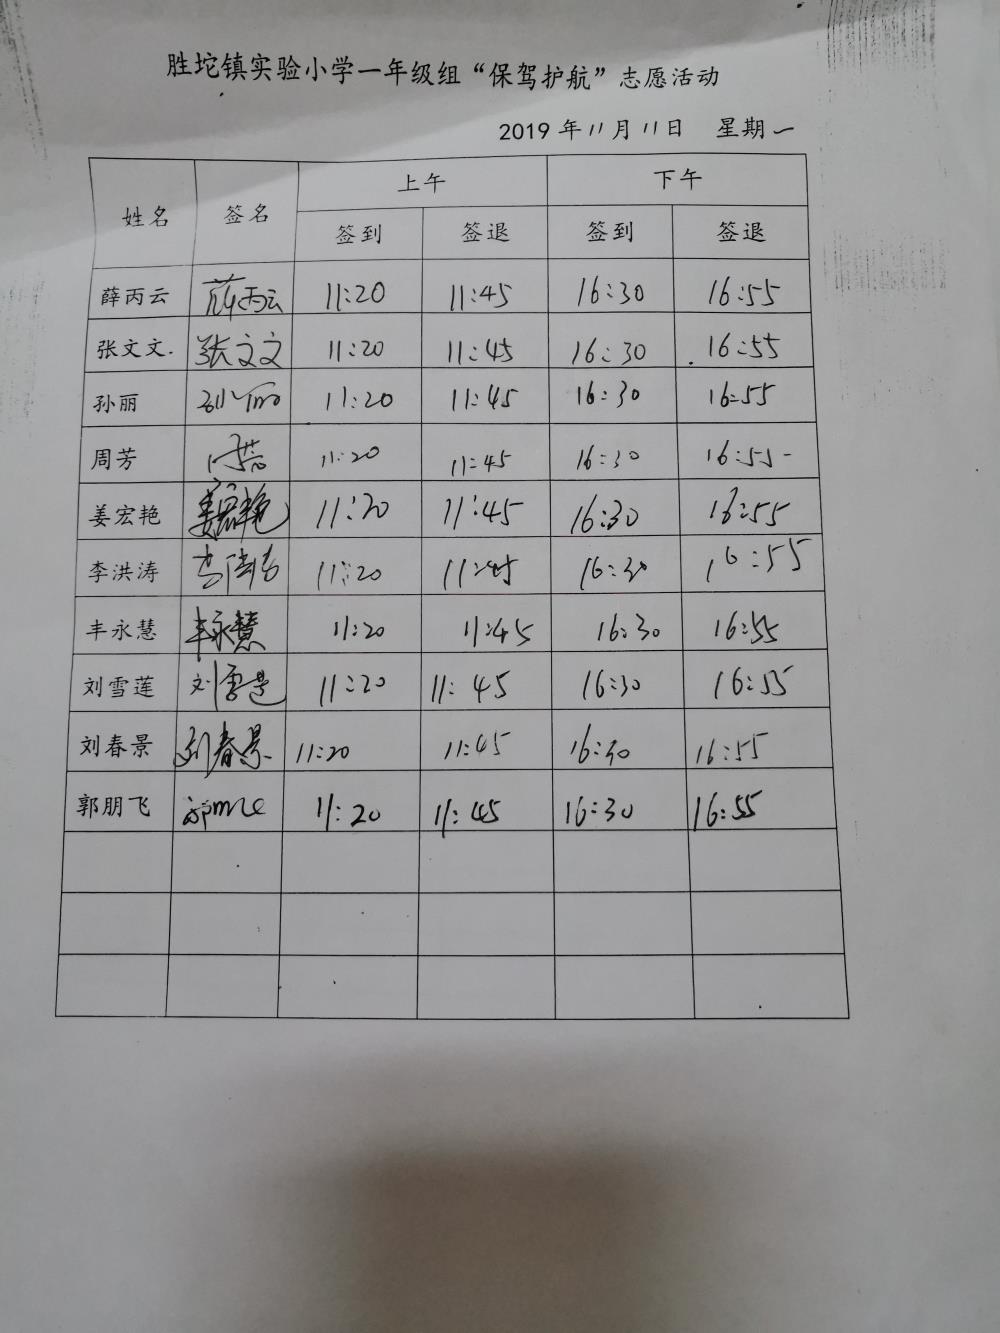 胜坨镇实验小学一年级组“保驾护航”志愿活动
2019 年 11 月 11 日 星期一
姓名 签名 上午 下午
签到 签退 签到 签退
薛丙云 薛丙云 11:20 11:45 16:30 16:55
张文文. 张文文 11:20 11:45 16:30 16:55
孙丽 孙丽 11:20 11:45 16:30 16:55
周芳 周芳 11:20 11:45 16:30 16:55
姜宏艳 姜宏艳 11:20 11:45 16:30 16:55
李洪涛 李洪涛 11:20 11:45 16:30 16:55
丰永慧 丰永慧 11:20 11:45 16:30 16:55
刘雪莲 刘雪莲 11:20 11:45 16:30 16:55
刘春景 刘春景 11:20 11:45 16:30 16:55
郭朋飞 11:20 11:45 16:30 16:55